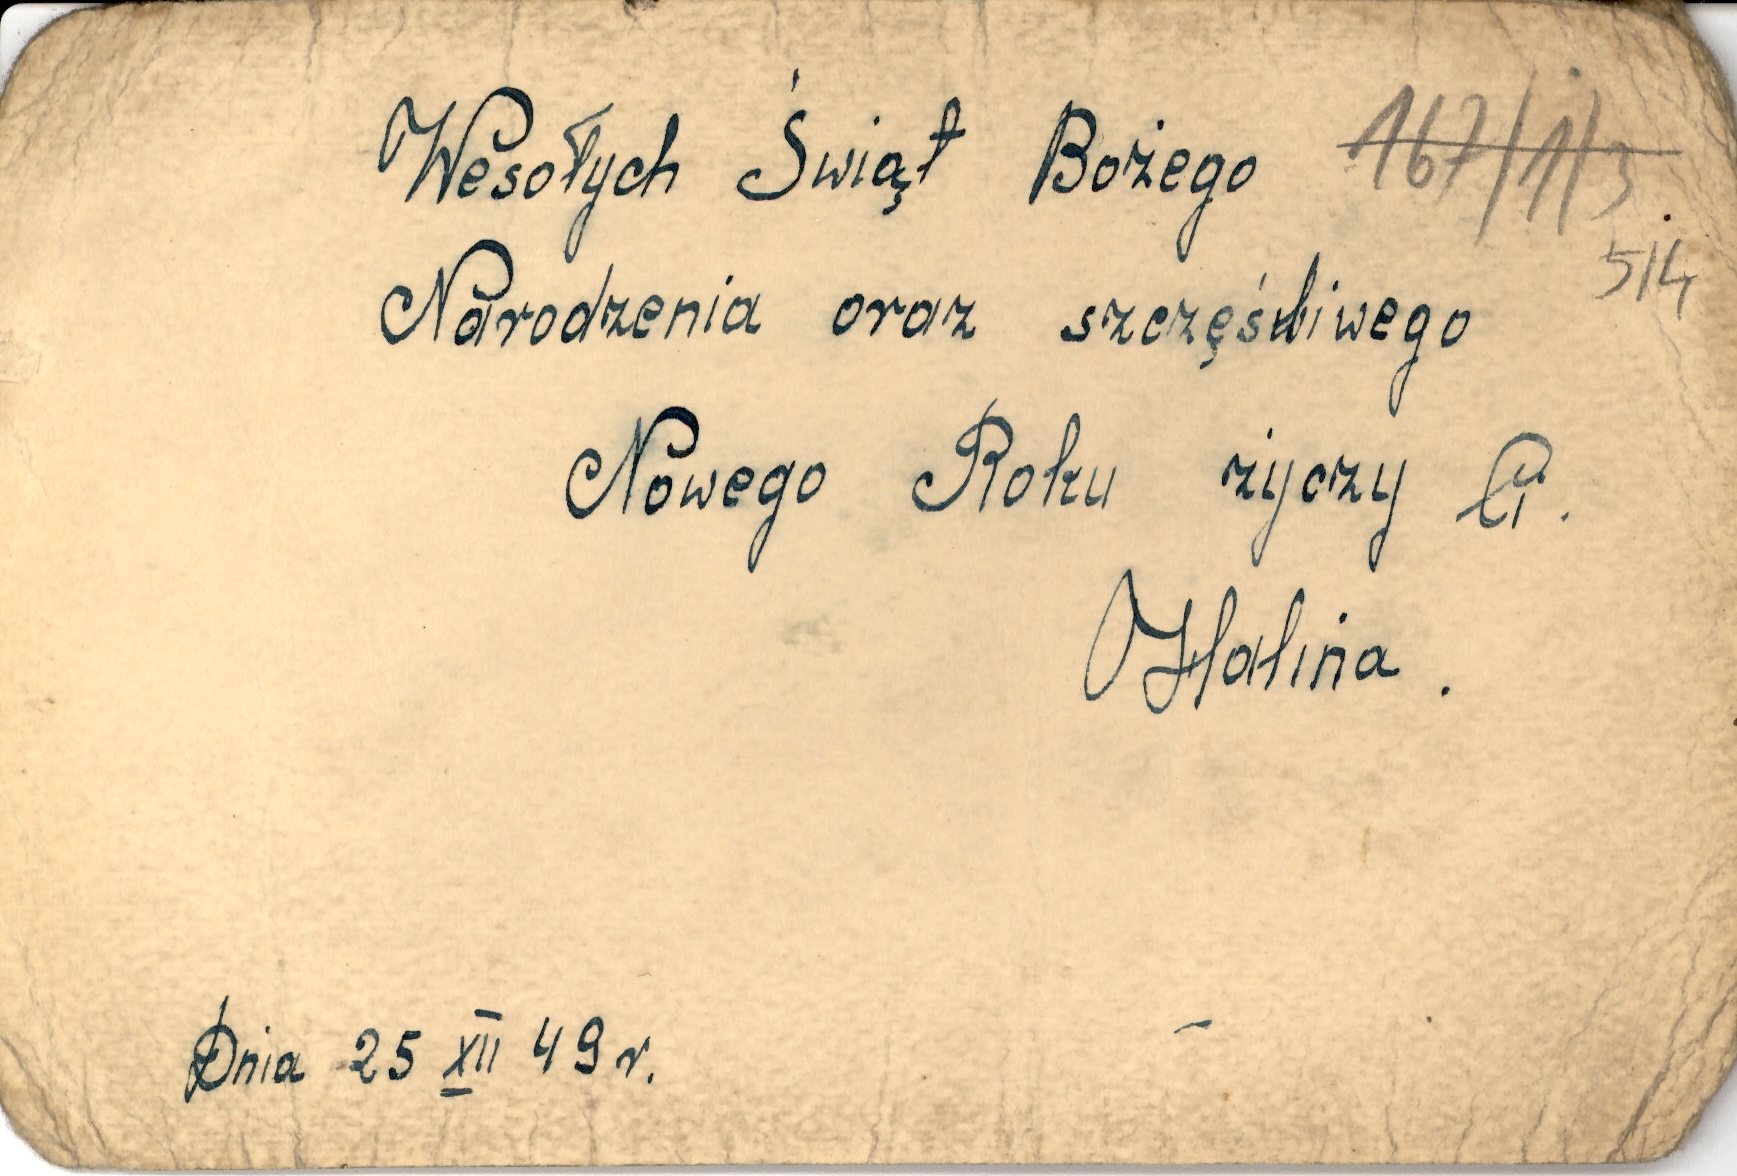 Wesołych Świąt Bożego
167/1/3
514
Narodzenia oraz szczęśliwego
Nowego Roku życzy Ci.
Halina.
Dnia 25 XII 49 r.